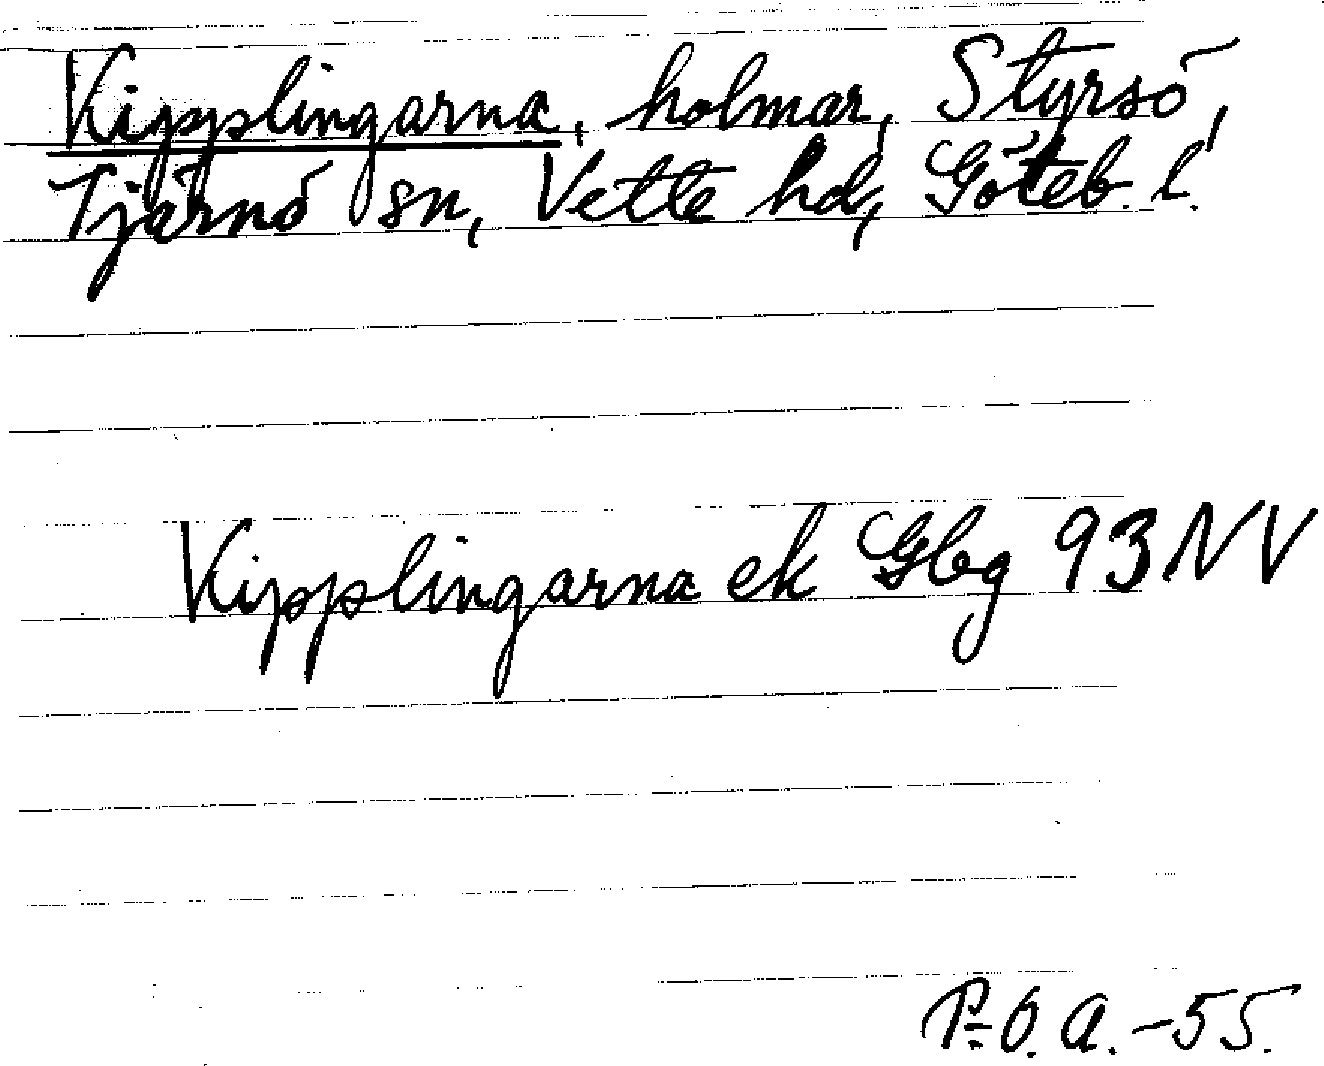 Kipplingarna, holmar, Styrsö,
Tjärnö sn, Vette hd, Göteb. l.
Kipplingarna ek Gbg 93 NV
P-O. A. -55.